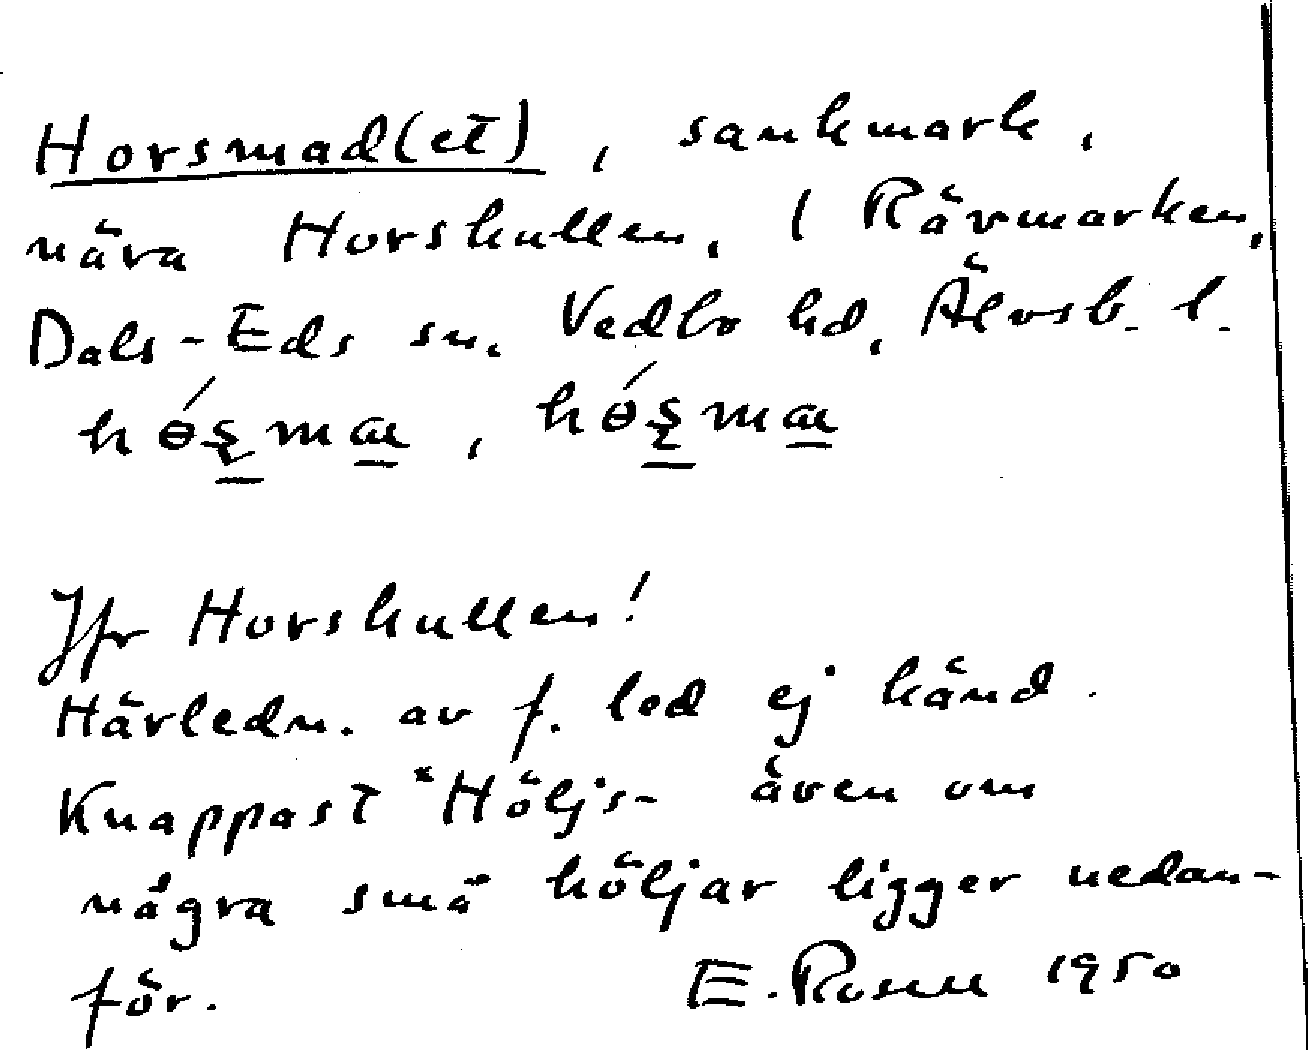 Horsmad(et), sankmark,
nära Horskullen, i Rävmarken,
Dals-Eds sn, Vedbo hd, Älvsb. l.
Jfr Horskullen!
Härledn. av f. led ej känd.
Knappast *Höljs- även om
några små höljar ligger nedan-
för. E. Rosell 1950